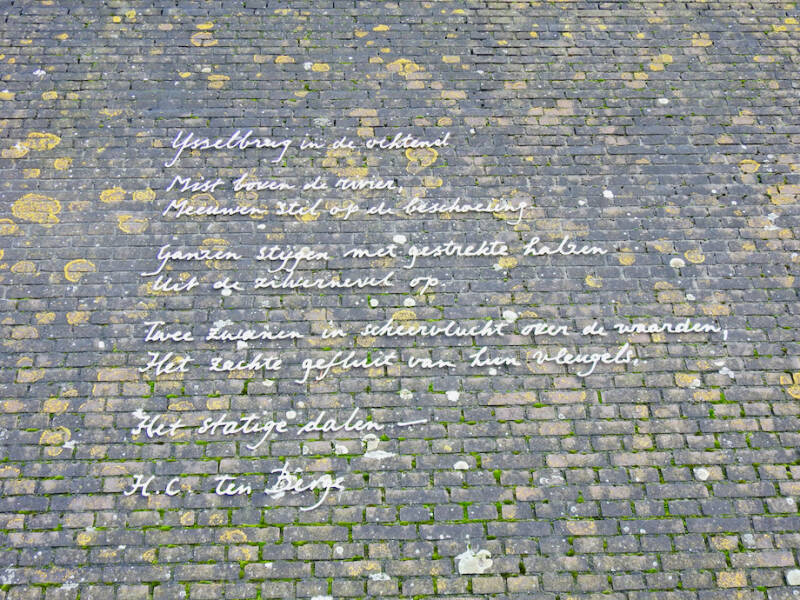 Ysselbrug in de ochtend
Mist boven de rivier.
Meeuwen stil op de beschoeiing
Ganzen stijgen met gestrekte halzen
Uit de zilvernevel op.
Twee zwanen in scheervlucht over de waarden,
Het zachte gefluit van hun vleugels.
Het statige dalen —
H.C. ten Berge